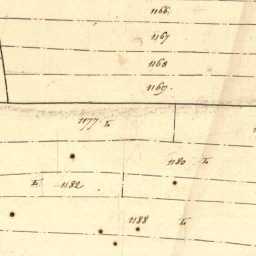 1166.
1167
1168
1169.
1177.
1180
1182
1188